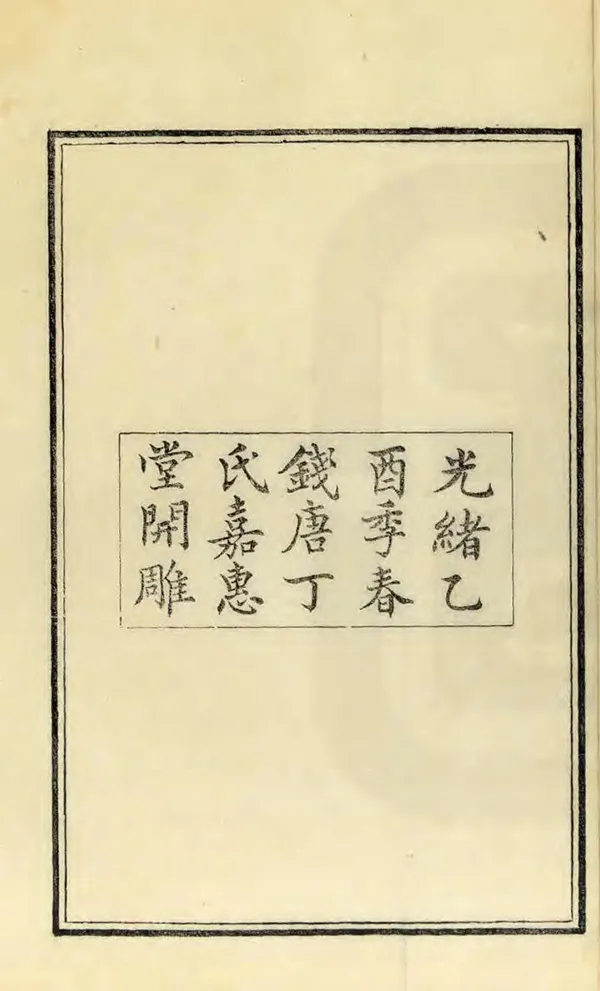 光緒乙
酉季春
錢唐丁
氏嘉惠
堂開雕